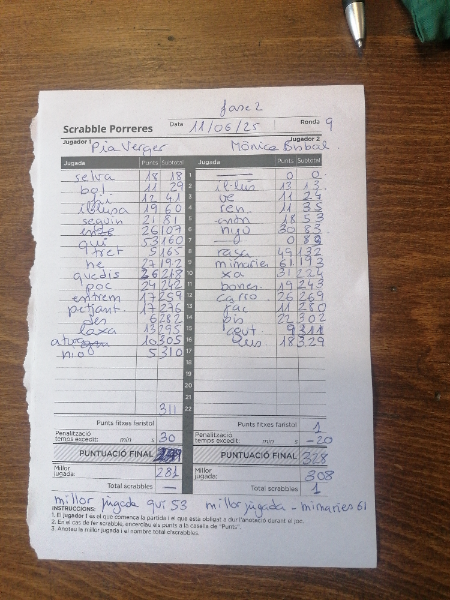 fase 2
Scrabble Porreres Data 11/06/25 Ronda 9
Jugador 1 Pia Verger Jugador 2 Mònica Bisbal
Jugada Punts Subtotal Jugada Punts Subtotal
selva 18 18 1 — 0 0
bol 11 29 2 il·lus 13 13
fui 12 41 3 ve 11 24
il·lusa 19 60 4 ren 11 35
seguin 21 81 5 18 53
26 107 6 niu 30 83
qui 53 160 7 — 0 83
tret 5 165 8 rasa 49 132
he 27 192 9 minaries 61 193
quedis 26 218 10 xa 31 224
poc 24 242 11 bones 19 243
entrem 17 259 12 carro 26 269
petjant 17 276 13 fac 11 280
des 6 282 14 pis 22 302
laxa 13 295 15 cout 9 311
10 305 16 18 329
nio 5 310 17
18
19
20
21
311 22
Punts fitxes faristol 1
Penalització temps excedit: min s 30 Penalització temps excedit: min s -20
PUNTUACIÓ FINAL PUNTUACIÓ FINAL 328
Millor jugada: 281 Millor jugada: 308
Total scrabbles — Total scrabbles 1
millor jugada qui 53 millor jugada - minaries 61
INSTRUCCIONS:
1. El jugador 1 és el que comença la partida i el que està obligat a dur l'anotació durant el joc.
2. En el cas de fer scrabble, encerclau els punts a la casella de "Punts".
3. Anotau la millor jugada i el nombre total d'scrabbles.